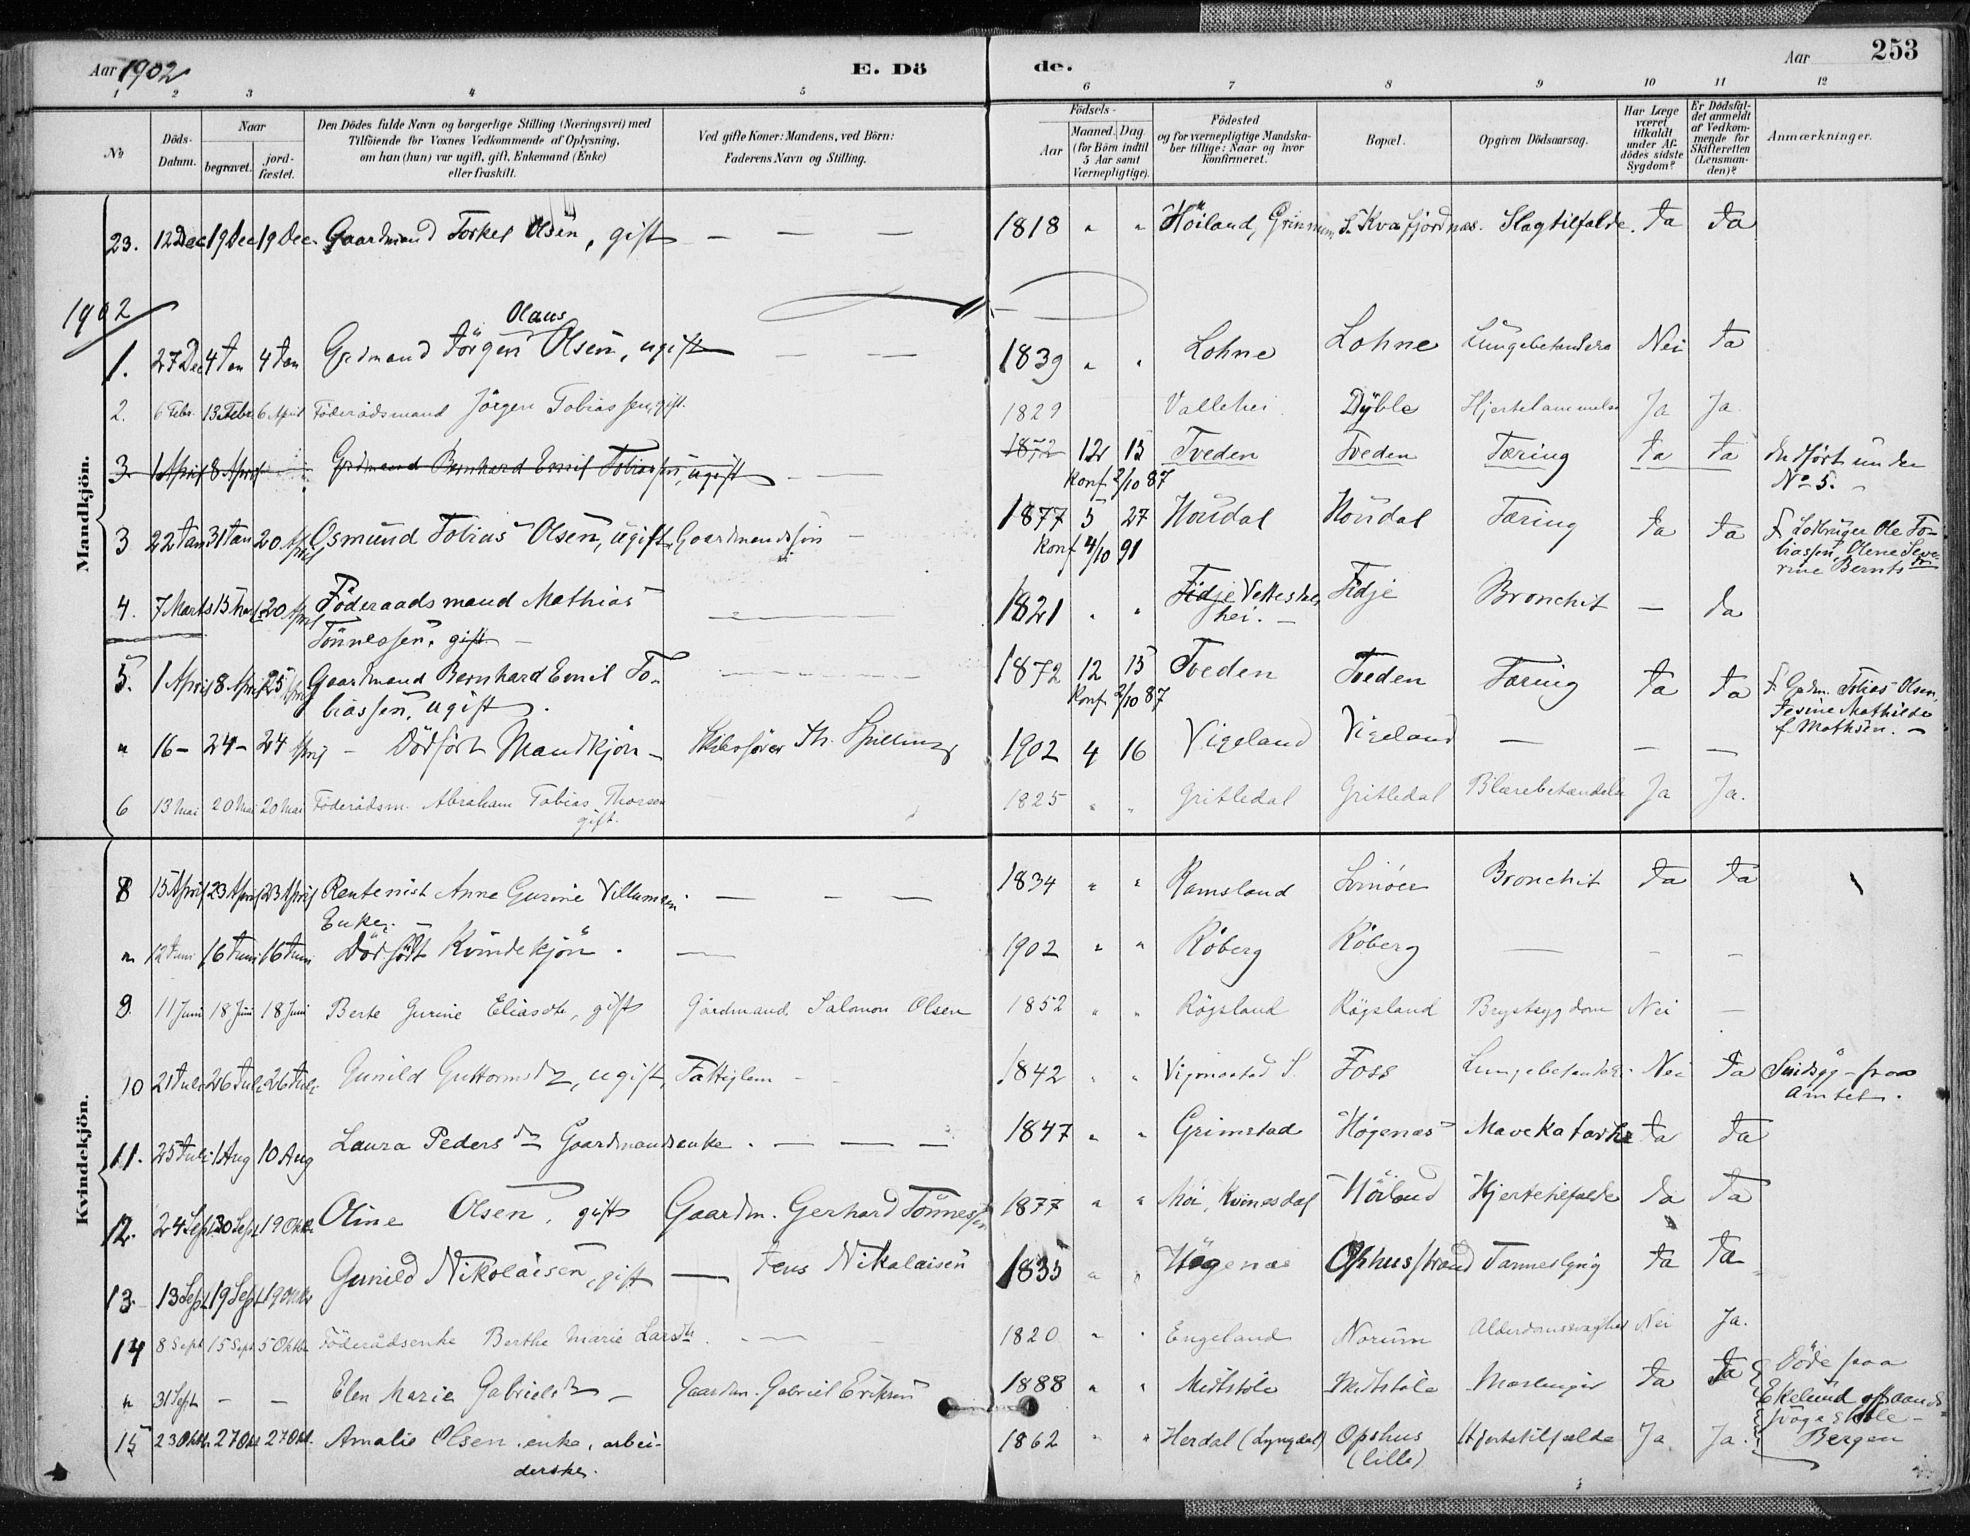 Aar 1902 E. Dö de. Aar 253
1 2 3 4 5 6 7 8 9 10 11 12
№ Döds-Datum. Naar begravet. jord-fæstet. Den Dödes fulde Navn og borgerlige Stilling (Næringsvei) med Tilföiende for Voxnes Vedkommende af Oplysning, om han (hun) var ugift, gift, Enkemand (Enke) eller fraskilt. Ved gifte Koner: Mandens, ved Börn: Faderens Navn og Stilling. Födsels- Aar Maaned. Dag. (for Börn indtil 5 Aar samt Værnepligtige). Födested og for værnepligtige Mandskaber tillige: Naar og hvor konfirmeret. Bopæl. Opgiven Dödsaarsag. Har Læge været tilkaldt under Afdödes sidste Sygdom? Er Dödsfaldet anmeldt af Vedkommende for Skifteretten (Lensmanden)? Anmærkninger.
Mandkjön.
23. 12 Dec 19 Dec 19 Dec. Gaardmand Torkel Olsen, gift — — — 1818 " " Höiland, Grinmm S. Kvafjordnæs. Slagtilfælde. Ja Ja
1902
Olaus
1. 27 Dec 4 Jan 4 Jan Grdmand Jörgen Olsen, ugift — — 1839 " " Lohne Lohne Lungebetændelse Nei Ja
2. 6 Febr. 13 Febr 6 April Föderådsmand Jörgen Tobiassen, gift. 1829 Vallehei Dyble Hjertelammelse Ja Ja
3. 1 April 8 April Grdmand Bernhard Emil Tobiassen, ugift — — 1872 12 15 Tveden Tveden Tæring Ja Ja Indfört under
Konf 2/10 87 No 5.
3 22 Jan 31 Jan 20 April Osmund Tobias Olsen, ugift, Gaardmandssön — 1877 5 27 Houdal Houdal Tæring Ja Ja F. Ole Tobiassen, Olene Severine Bernts
Konf 4/10 91
4. 7 Marts 15 Marts 20 April Föderaadsmand Mathias 1821 " " Fidje Fidje Bronchit — Ja
Tönnessen, gift — hei. —
5. 1 April 8 April 25 April Gaardmand Bernhard Emil To- 1872 12 15 Tveden Tveden Tæring Ja Ja F. Grdm. Tobias Olsen,
biassen, ugift. Konf 2/10 87 Jesine Mathilde
f Mathsen. —
" 16 – 24 – 24 April – Dödfört Mandkjön – Skibsförer Th. Spilling 1902 4 16 Vigeland Vigeland — — —
6 13 Mai 20 Mai 20 Mai Föderådsm. Abraham Tobias Thorsen 1825 " " Gritledal Gritledal Blærebetændelse Ja Ja.
gift.
Kvindekjön.
8 15 April 23 April 23 April Rentenist Anne Gurine Villumsen — — — 1834 " " Ramsland Svinöer Bronchit Ja Ja
Enke. —
" 12 Juni 16 Juni 16 Juni Dödfödt Kvindekjön. — 1902 " " Röberg Röberg — – –
9 11 Juni 18 Juni 18 Juni Berte Gurine Eliasdtr, gift Gårdmand Salomon Olsen 1852 " " Rögsland Rögsland Brystsygdom Nei —
10 21 Juli 26 Juli 26 Juli Gunild Guttormsdtr, ugift, Fattiglem – – 1842 " " Vigmostad S. Foss Lungebetændelse. Nei Ja Sindssyg – fraa
Amtet.
11. 25 Juli 1 Aug 10 Aug Laura Pedersdtr Gaardmandsenke. — — — 1847 " " Grimstad Högenæs Mavekatarhr Ja Ja
12. 24 Sept 30 Sept 19 Oktbr Oline Olsen, gift Gaardm. Gerhard Tönnessen 1877 " " Moi, Kvinesdal Höiland Hjertetilfælde Ja Ja
13. 13 Sept 19 Sept 19 Oktbr Gunild Nikolaisen, gift — Jens Nikolaisen 1835 " " Högenæs Ophusstrand Ja Ja
14 8 Sept 15 Sept 5 Oktbr Föderådsenke Berthe Marie Larsdtr. — — 1820 " " Engeland Norum Alderdomssvaghed Nei Ja.
" 31 Sept – – Elen Marie Gabrielsdtr – Gaardm. Gabriel Eriksen 1888 " " Midtstöle Midtstöle Ja Ja Döde paa
Ekelund
skole –
15 23 Oktbr 27 Okt 27 Okt. Amalie Olsen, enke, arbei- 1862 " " Herdal (Lyngdal) Opshus Hjertetilfælde Ja Ja. Bergen
derske. (lille)